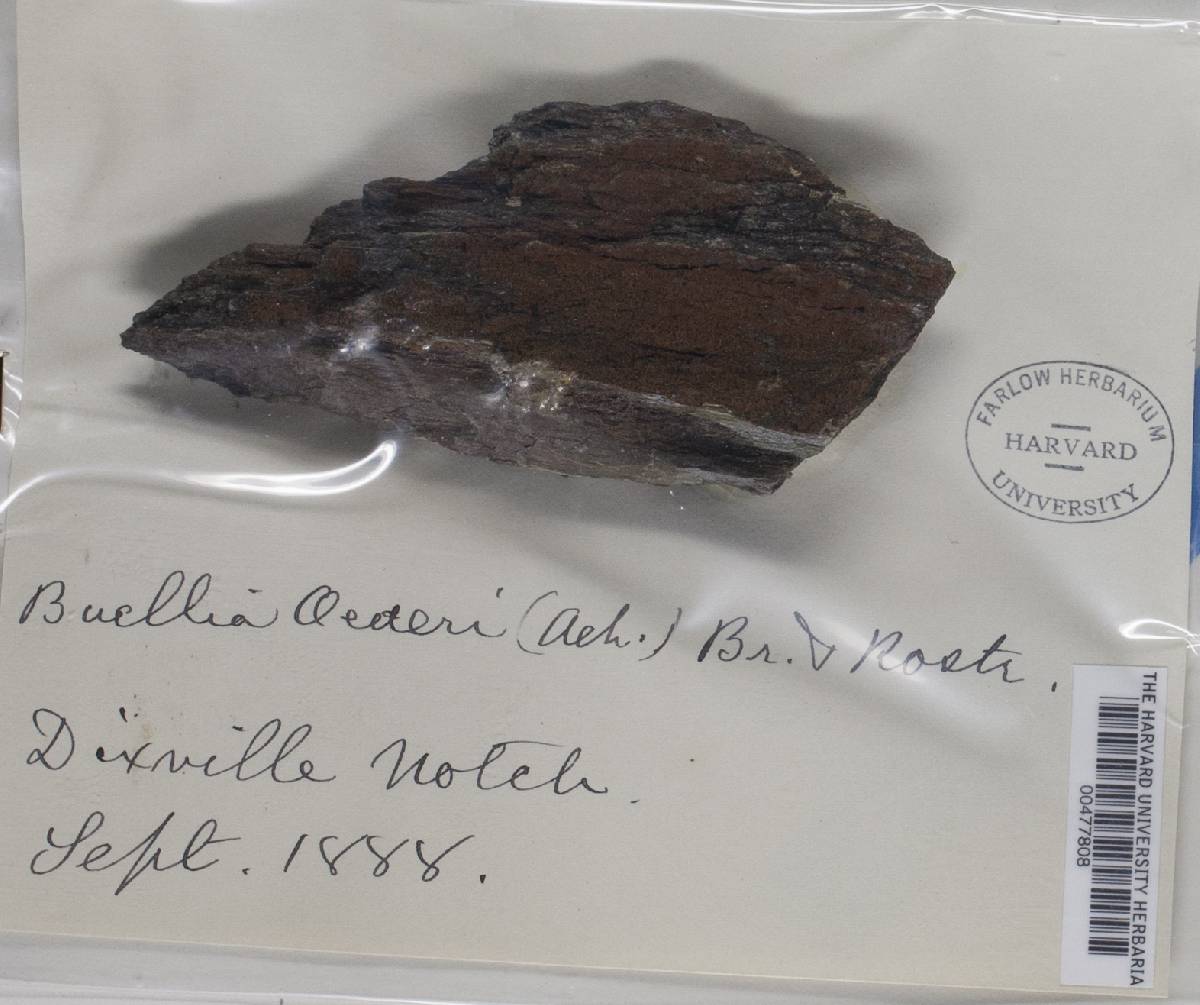 FARLOW HERBARIUM
HARVARD
UNIVERSITY
Buellia Oederi (Ach.) Br. & Rostr.
Dixville Notch.
Sept. 1888.
THE HARVARD UNIVERSITY HERBARIA
00477808